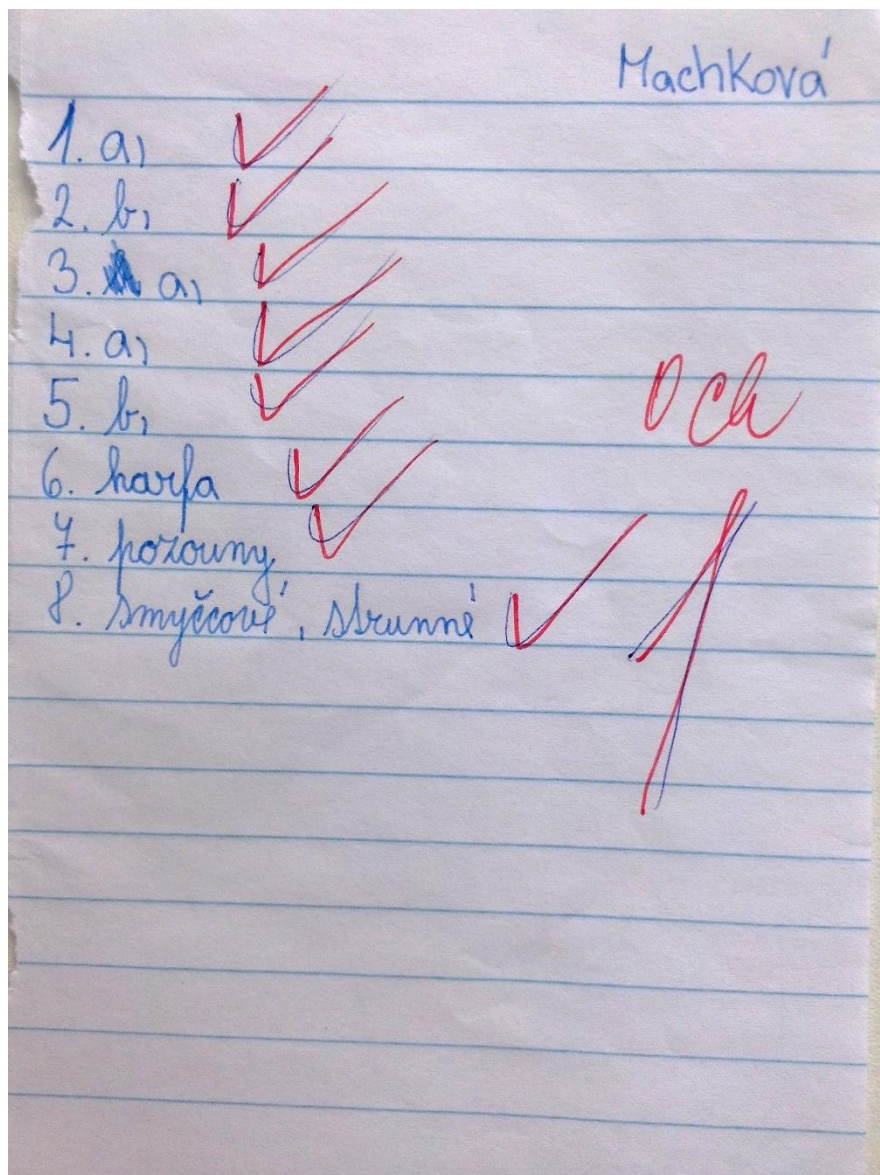 Machková
1. a,
2. b,
3. a,
4. a,
5. b,
6. harfa
7. pozouny
8. smyčcové, strunné
0 ch
1